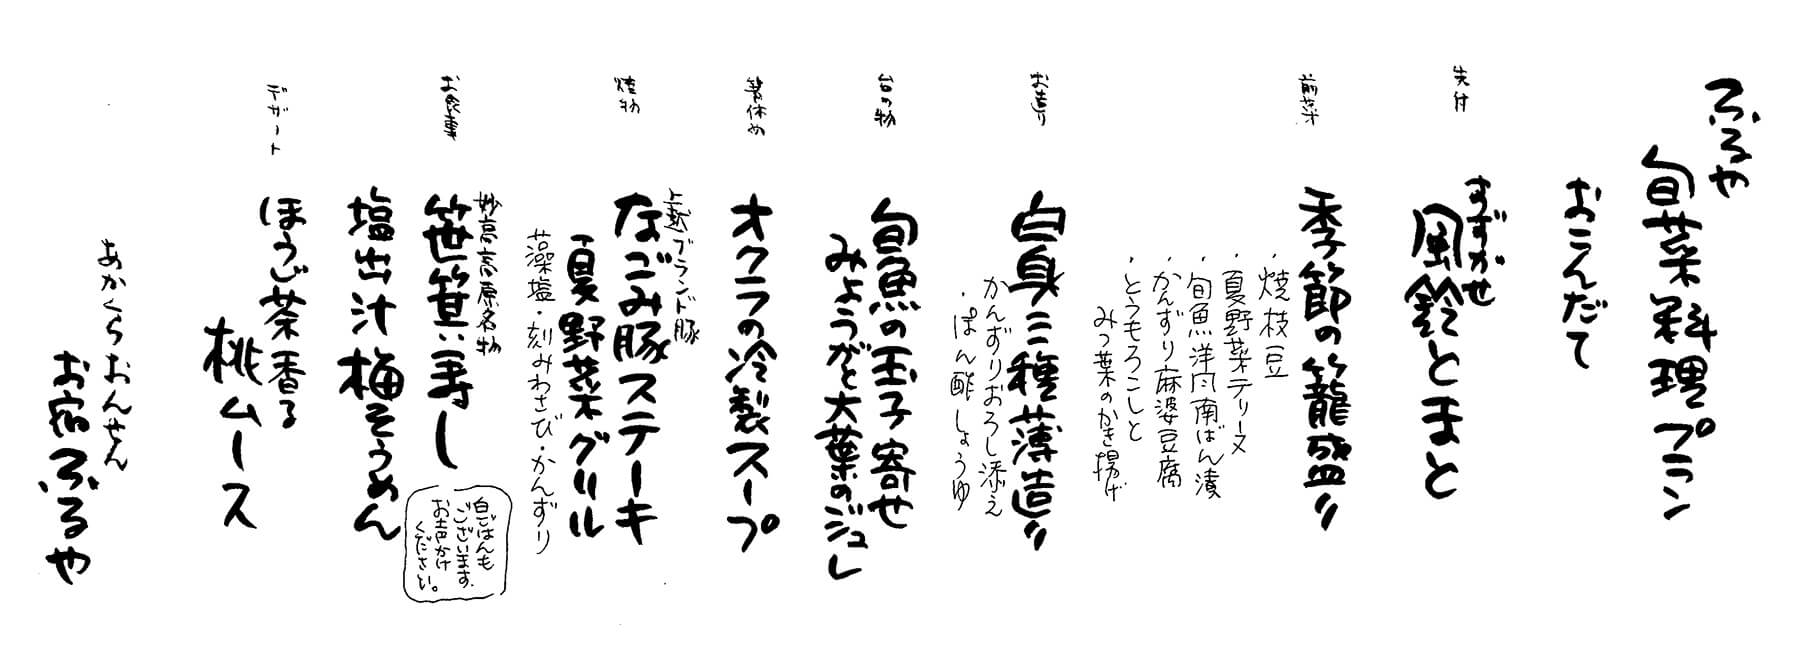 ふるや
旬菜料理プラン
おこんだて
先付
すずかぜ
風鈴とまと
前菜
季節の籠盛り
・焼枝豆
・夏野菜テリーヌ
・旬魚洋風南ばん漬
・かんずり麻婆豆腐
・とうもろこしと
みつ葉のかき揚げ
お造り
白身三種薄造り
かんずりおろし添え
・ぽん酢しょうゆ
台の物
旬魚の玉子寄せ
みょうがと大葉のジュレ
箸休め
オクラの冷製スープ
焼物
上越ブランド豚
なごみ豚ステーキ
夏野菜グリル
藻塩・刻みわさび・かんずり
お食事
妙高高原名物
笹箕い寿し
白ごはんも
ございます。
お声かけ
ください。
塩出汁梅そうめん
デザート
ほうじ茶香る
桃ムース
あかくらおんせん
お宿ふるや